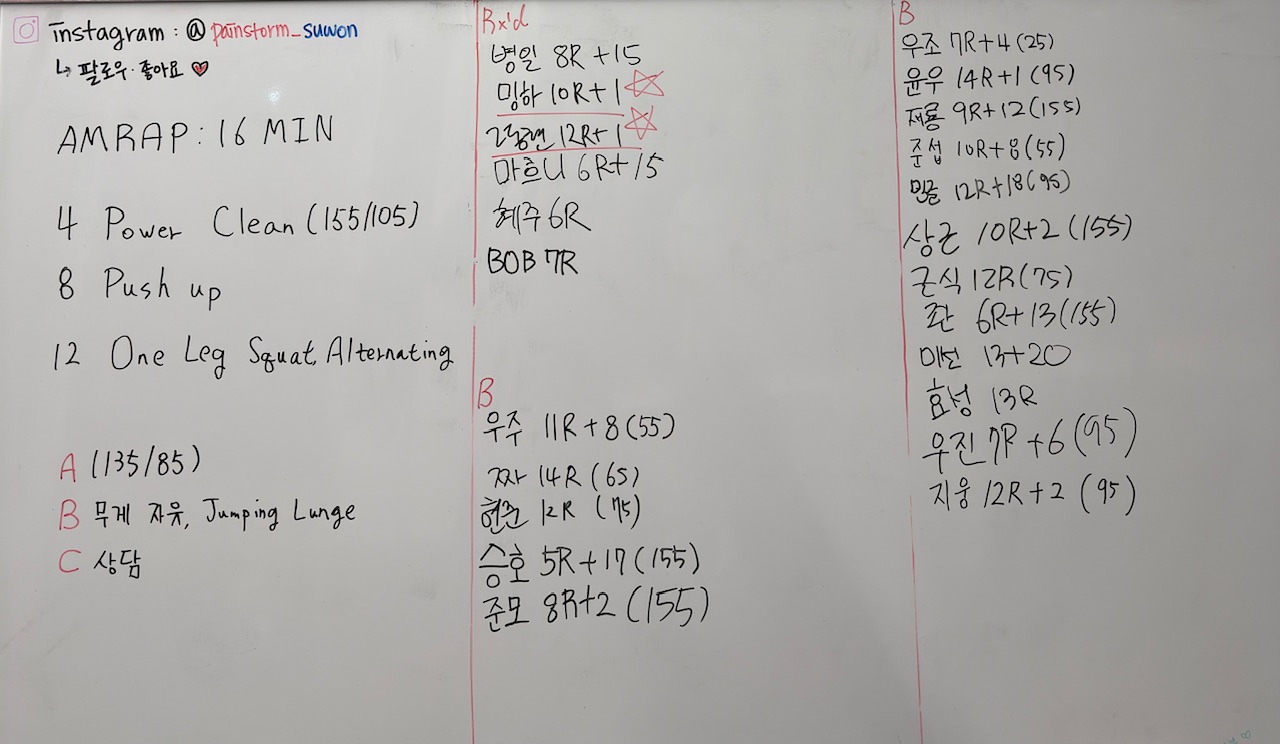 instagram : @painstorm_suwon
↳ 팔로우·좋아요 ♥
AMRAP : 16 MIN
4 Power Clean (155/105)
8 Push up
12 One Leg Squat Alternating
A (135/85)
B 무게 자유, Jumping Lunge
C 상담
Rx'd
병일 8R+15
밍하 10R+1 ☆
12R+1 ☆
마흐니 6R+15
혜주 6R
BOB 7R
B
우주 11R+8(55)
짜 14R (65)
현준 12R (75)
승호 5R+17(155)
준모 8R+2 (155)
B
우조 7R+4(25)
윤우 14R+1(95)
재룡 9R+12(155)
준섭 10R+8(55)
12R+18(95)
상근 10R+2(155)
근식 12R(75)
6R+13(155)
미선 13+20
효성 13R
우진 7R+6(95)
지웅 12R+2 (95)